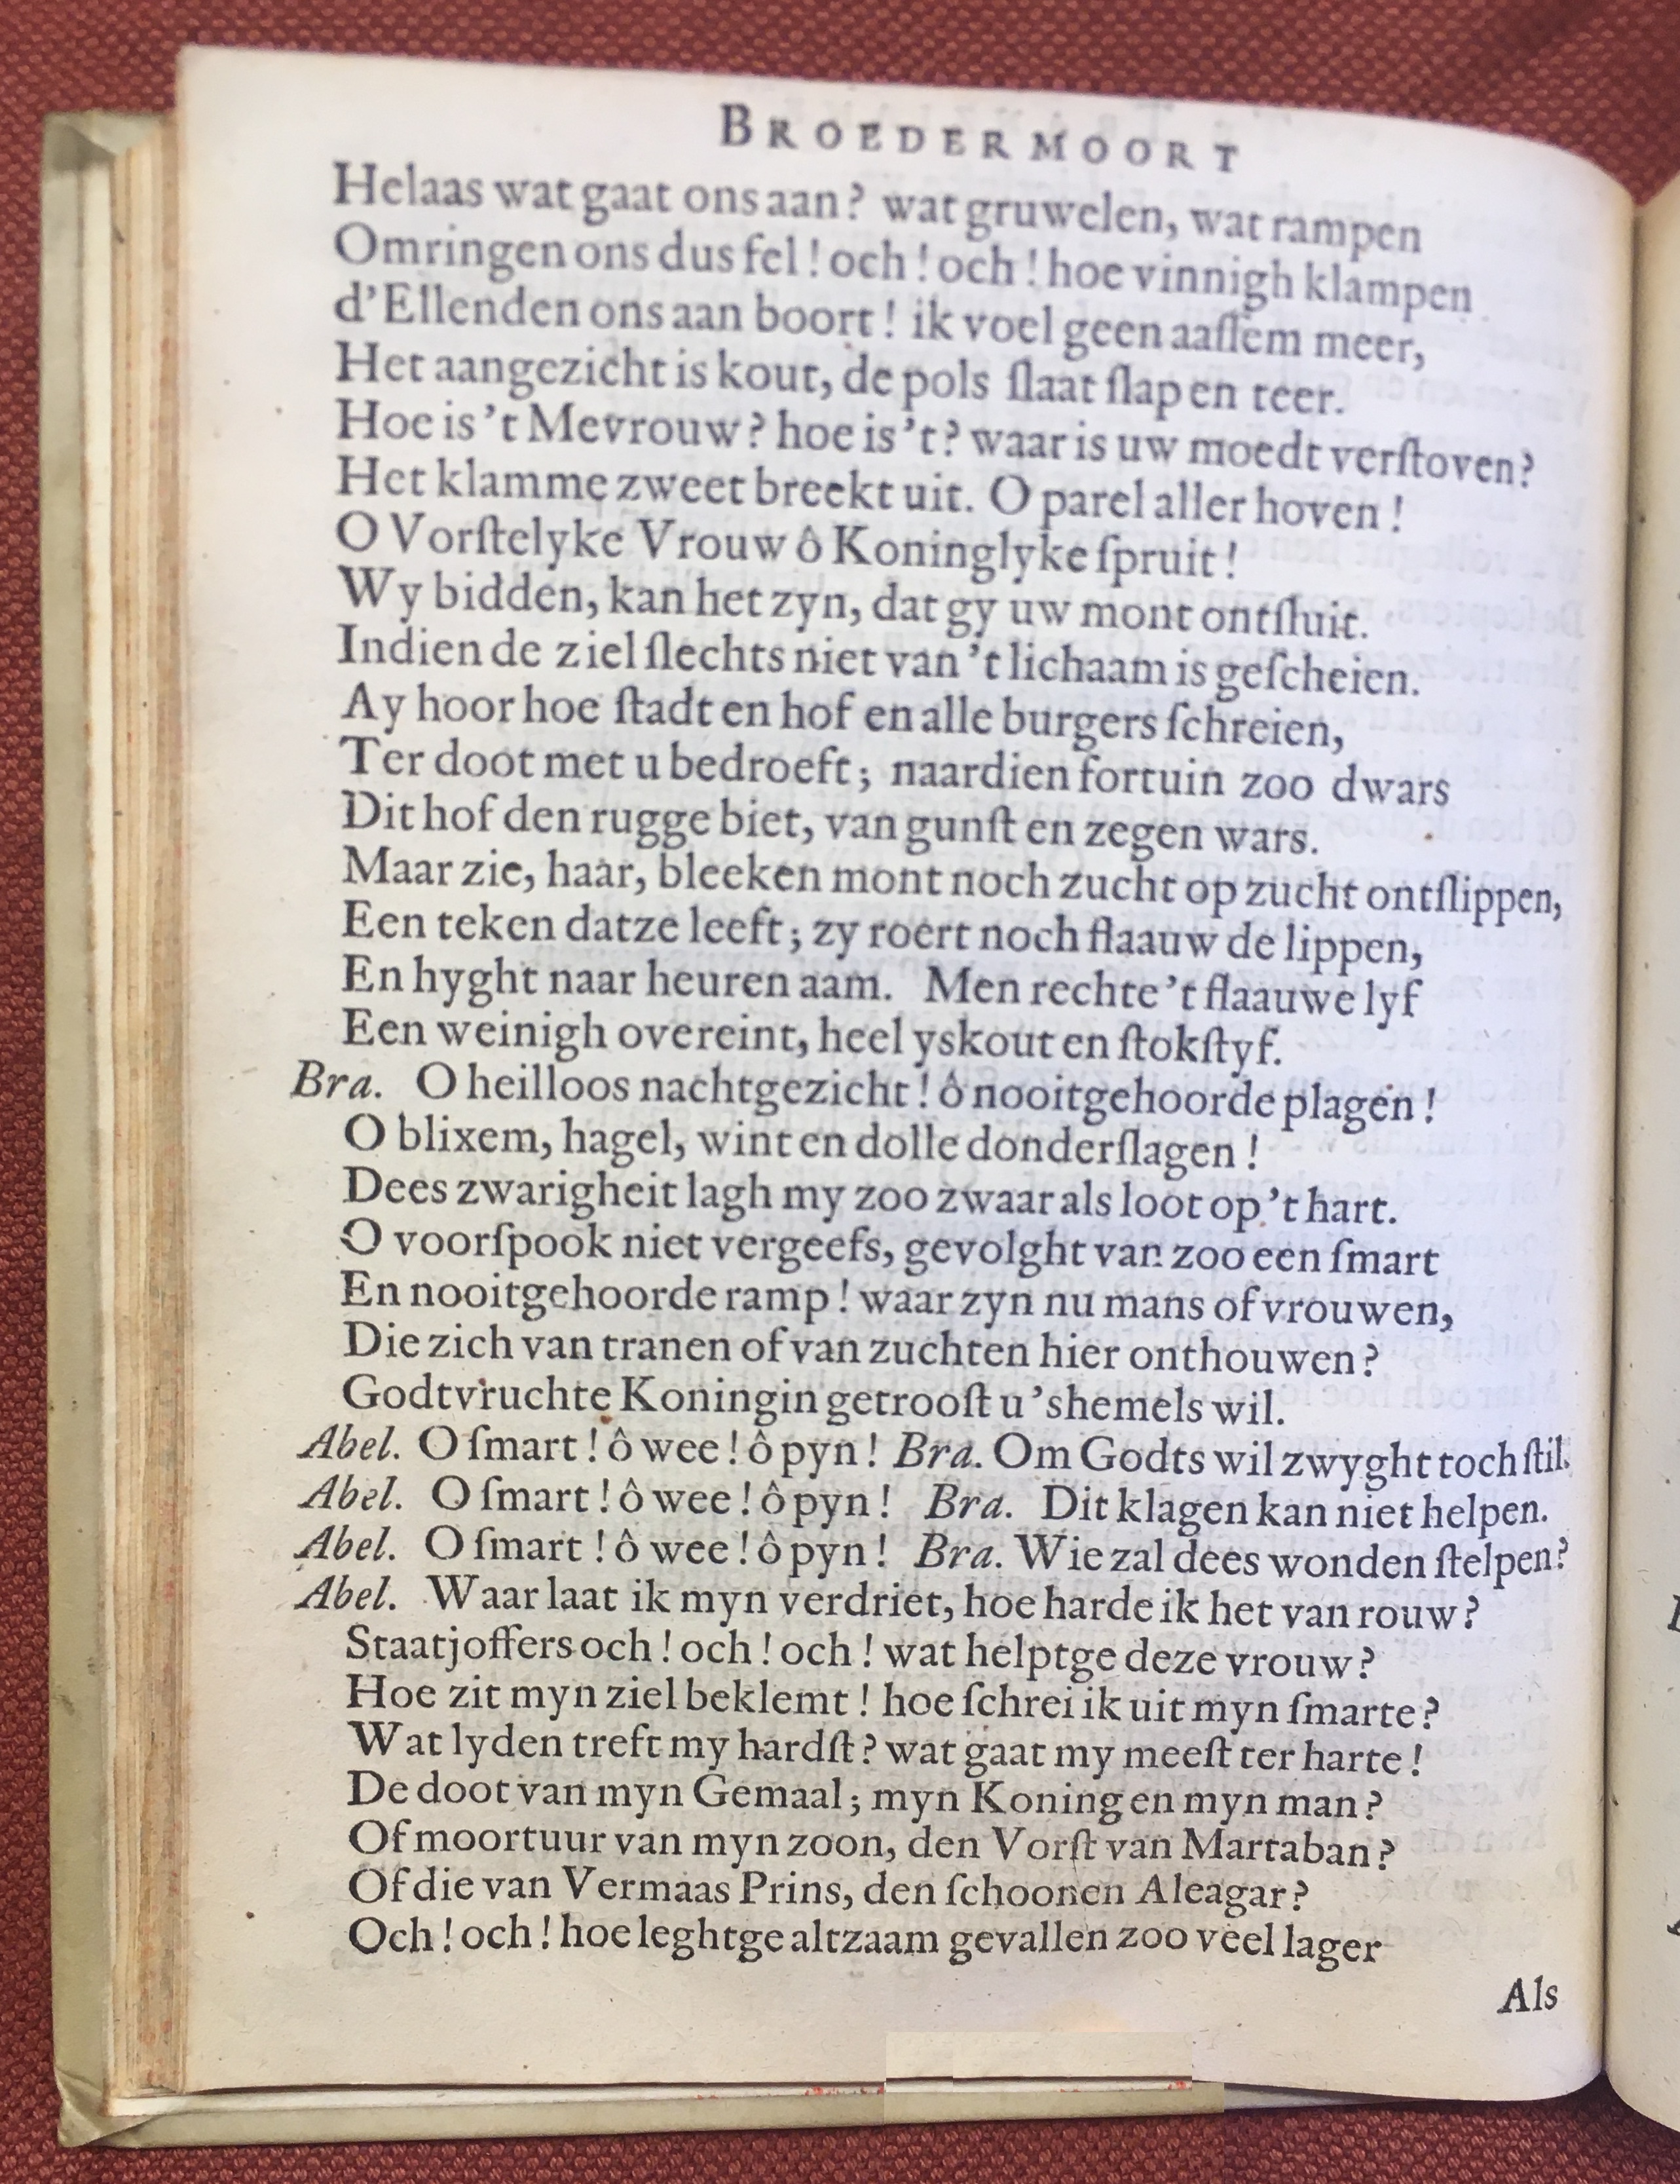 BROEDERMOORT
Helaas wat gaat ons aan? wat gruwelen, wat rampen
Omringen ons dus fel! och! och! hoe vinnigh klampen
d'Ellenden ons aan boort! ik voel geen aaſſem meer,
Het aangezicht is kout, de pols ſlaat ſlap en teer.
Hoe is 't Mevrouw? hoe is 't? waar is uw moedt verſtoven?
Het klamme zweet breekt uit. O parel aller hoven!
O Vorſtelyke Vrouw ô Koninglyke ſpruit!
Wy bidden, kan het zyn, dat gy uw mont ontſluit.
Indien de ziel ſlechts niet van 't lichaam is geſcheien.
Ay hoor hoe ſtadt en hof en alle burgers ſchreien,
Ter doot met u bedroeft; naardien fortuin zoo dwars
Dit hof den rugge biet, van gunſt en zegen wars.
Maar zie, haar, bleeken mont noch zucht op zucht ontſlippen,
Een teken datze leeft; zy roert noch flaauw de lippen,
En hyght naar heuren aam. Men rechte 't flaauwe lyf
Een weinigh overeint, heel yskout en ſtokſtyf.
Bra. O heilloos nachtgezicht! ô nooitgehoorde plagen!
O blixem, hagel, wint en dolle donderſlagen!
Dees zwarigheit lagh my zoo zwaar als loot op 't hart.
O voorſpook niet vergeefs, gevolght van zoo een ſmart
En nooitgehoorde ramp! waar zyn nu mans of vrouwen,
Die zich van tranen of van zuchten hier onthouwen?
Godtvruchte Koningin getrooſt u 'shemels wil.
Abel. O ſmart! ô wee! ô pyn! Bra. Om Godts wil zwyght toch ſtil.
Abel. O ſmart! ô wee! ô pyn! Bra. Dit klagen kan niet helpen.
Abel. O ſmart! ô wee! ô pyn! Bra. Wie zal dees wonden ſtelpen?
Abel. Waar laat ik myn verdriet, hoe harde ik het van rouw?
Staatjoffers och! och! och! wat helptge deze vrouw?
Hoe zit myn ziel beklemt! hoe ſchrei ik uit myn ſmarte?
Wat lyden treft my hardſt? wat gaat my meeſt ter harte!
De doot van myn Gemaal; myn Koning en myn man?
Of moortuur van myn zoon, den Vorſt van Martaban?
Of die van Vermaas Prins, den ſchoonen Aleagar?
Och! och! hoe leghtge altzaam gevallen zoo veel lager
Als